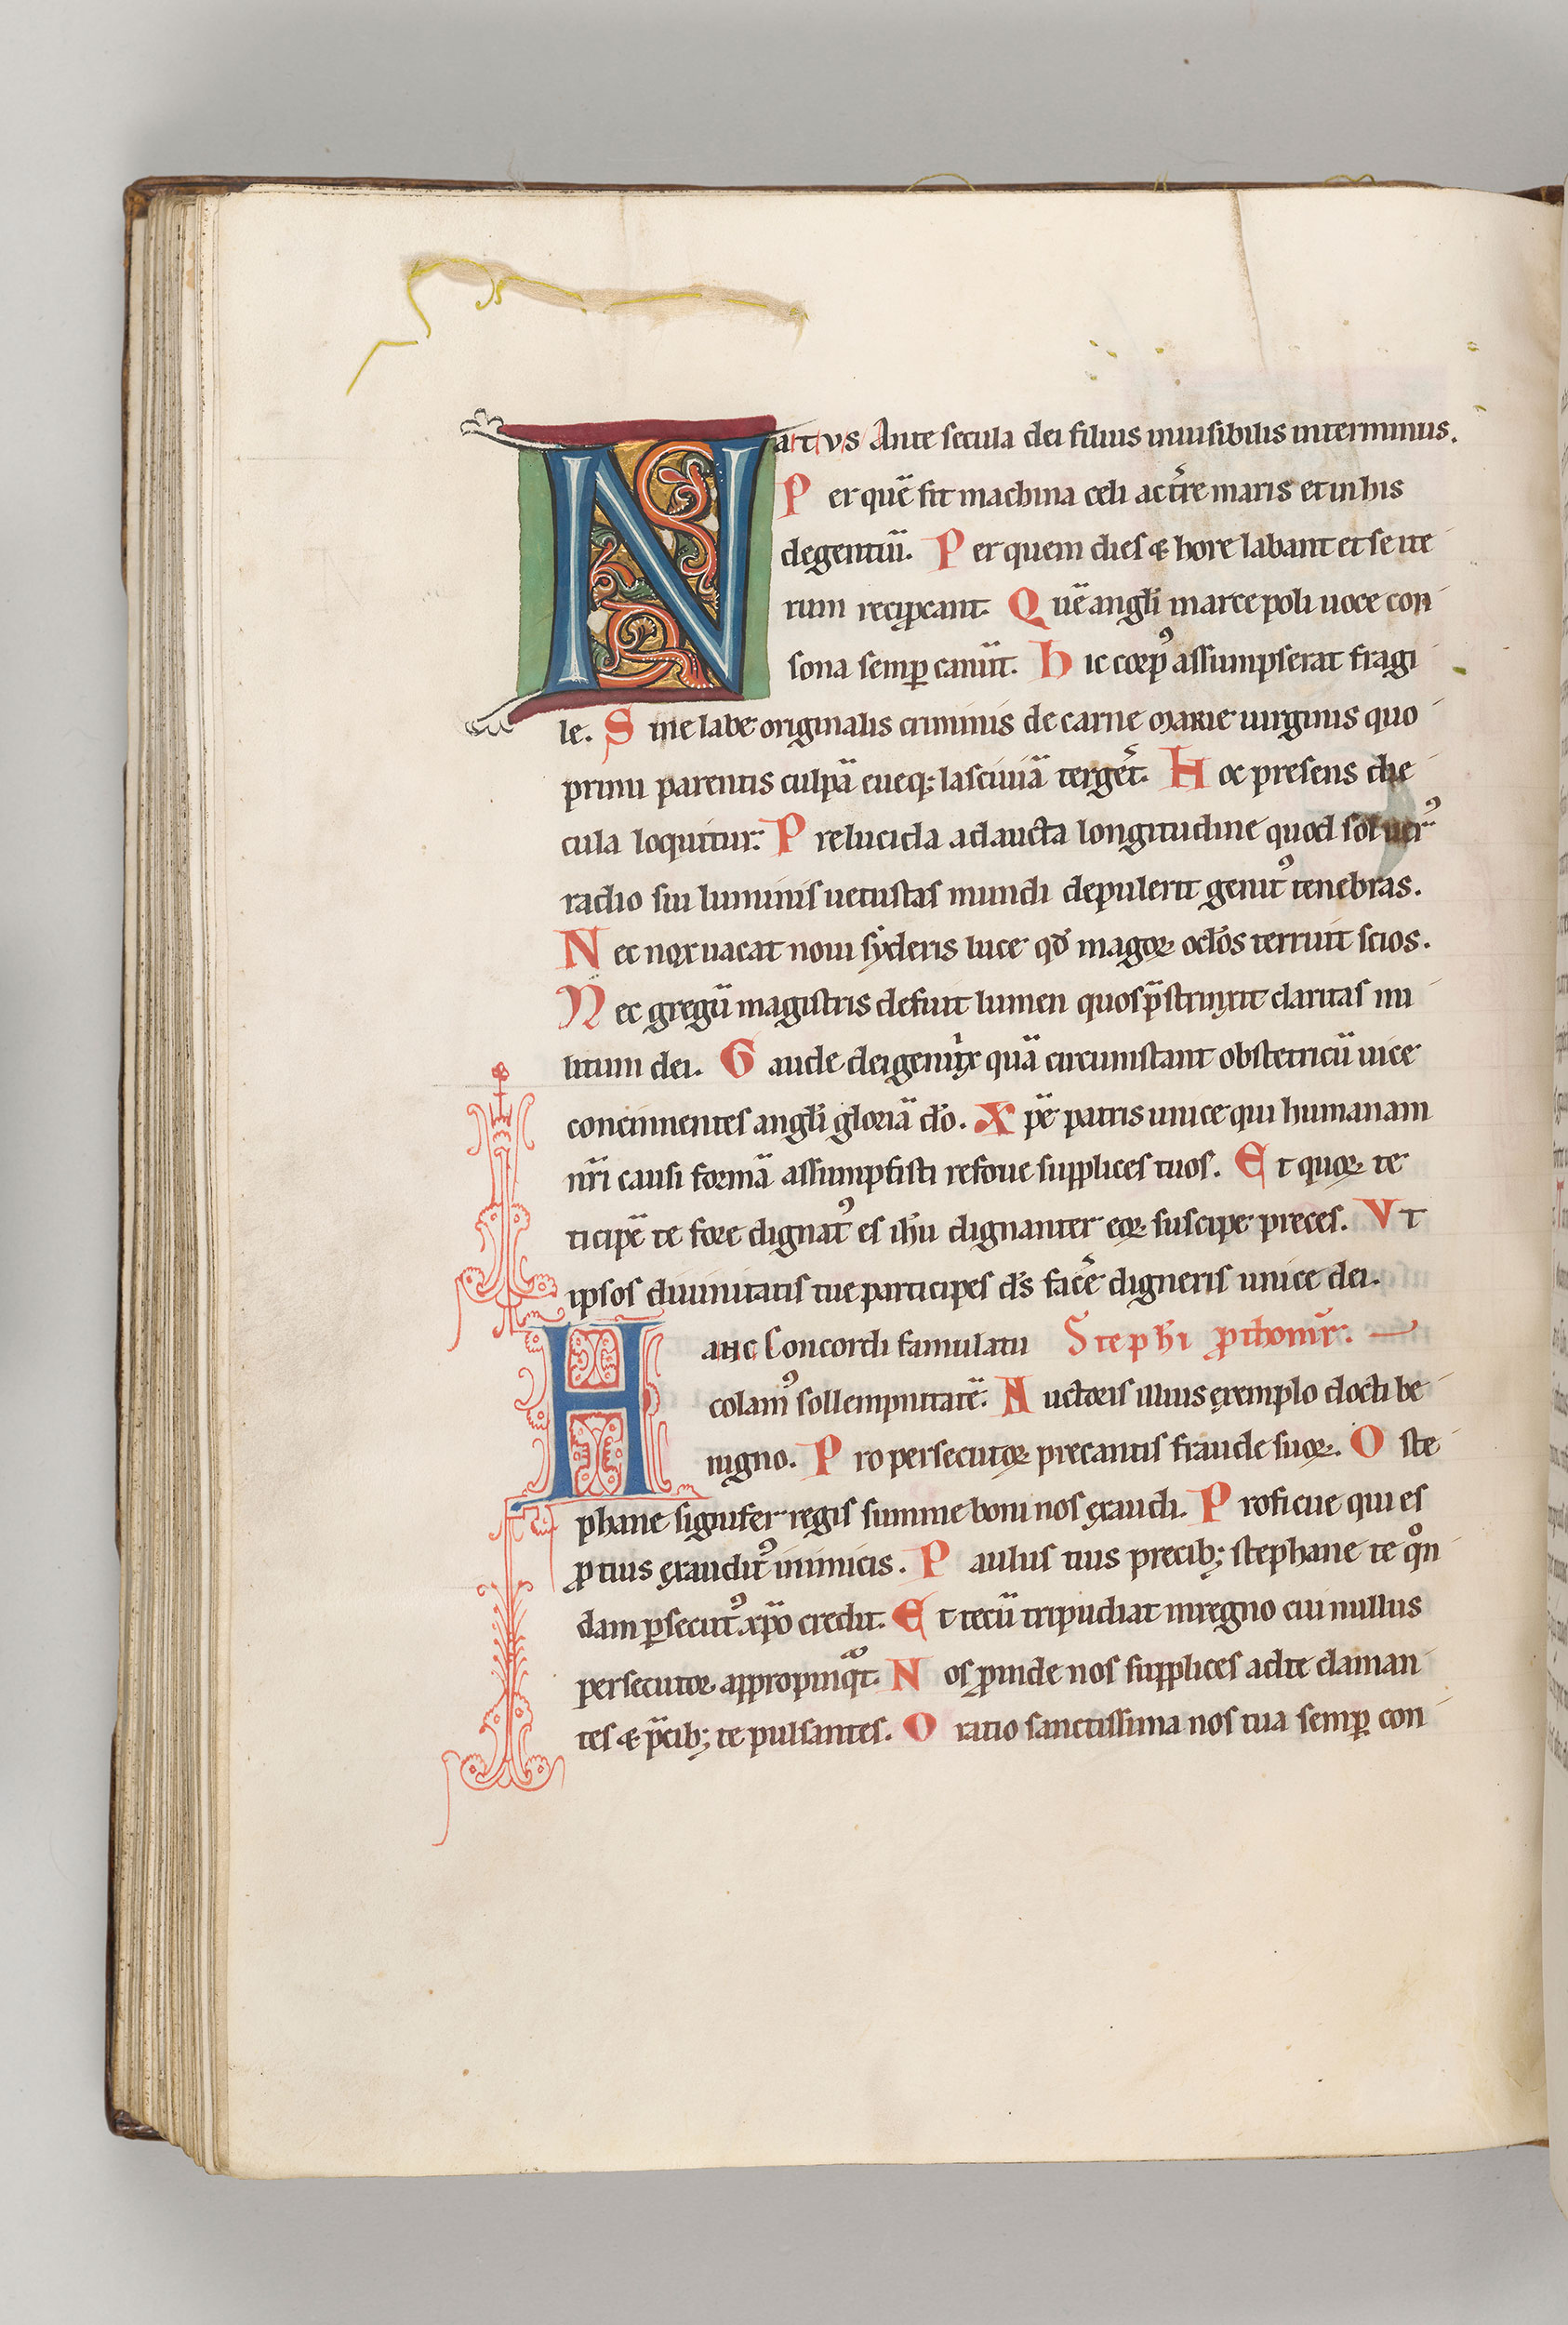 Natvs Ante secula dei filius inuisibilis interminus.
Per quē fit machina celi ac t̄re maris et in his
degentiū. Per quem dies & hore labant et se ite
rum recipiant. Quē angl̄i in arce poli uoce con
sona semꝑ canūt. Hic corpꝰ assumpserat fragi
le. Sine labe originalis criminis de carne marie uirginis quo
primi parentis culpā eueq; lasciuiā terget̄. Hoc presens die
cula loquitur. Prelucida adaucta longitudine quod sol uerꝰ
radio sui luminis uetustas mundi depulerit genitꝰ tenebras.
Nec nox uacat noui syderis luce qd̄ magoꝝ oc̄los terruit scios.
Nec gregū magistris defuit lumen quos p̄strinxit claritas mi
litum dei. Gaude dei genitrix quā circumstant obstetricū uice
concinnentes angl̄i gloriā dō. Xp̄e patris unice qui humanam
nr̄i causi formā assumpsisti refoue supplices tuos. Et quoꝝ te
ticipē te fore dignatꝰ es ih̄u dignanter eoꝝ suscipe preces. Vt
ipsos diuinitatis tue participes ds̄ facē digneris unice dei.
Hanc Concordi famulatu Stephi ꝓthom̄r.
colamꝰ sollempnitatē. Auctoris illius exemplo docti be
nigno. Pro persecutoꝝ precantis fraude suoꝝ. O ste
phane signifer regis summe boni nos exaudi. Proficue qui es
ꝓ tuis exauditꝰ inimicis. Paulus tuis precib; stephane te qōn
dam ꝑsecutꝰ xp̄o credit. Et tecū tripudiat in regno cui nullus
persecutor appropinq̄t. Nos ꝓinde nos supplices ad te claman
tes & p̄cib; te pulsantes. Oratio sanctissima nos tua semꝑ con